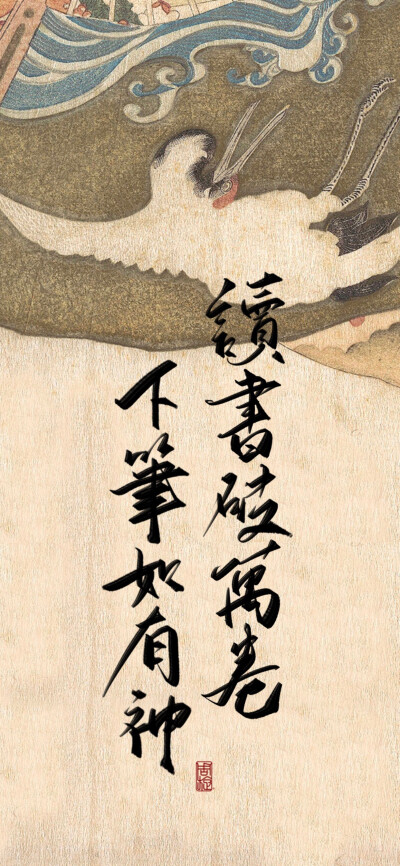 讀書破萬卷
下筆如有神